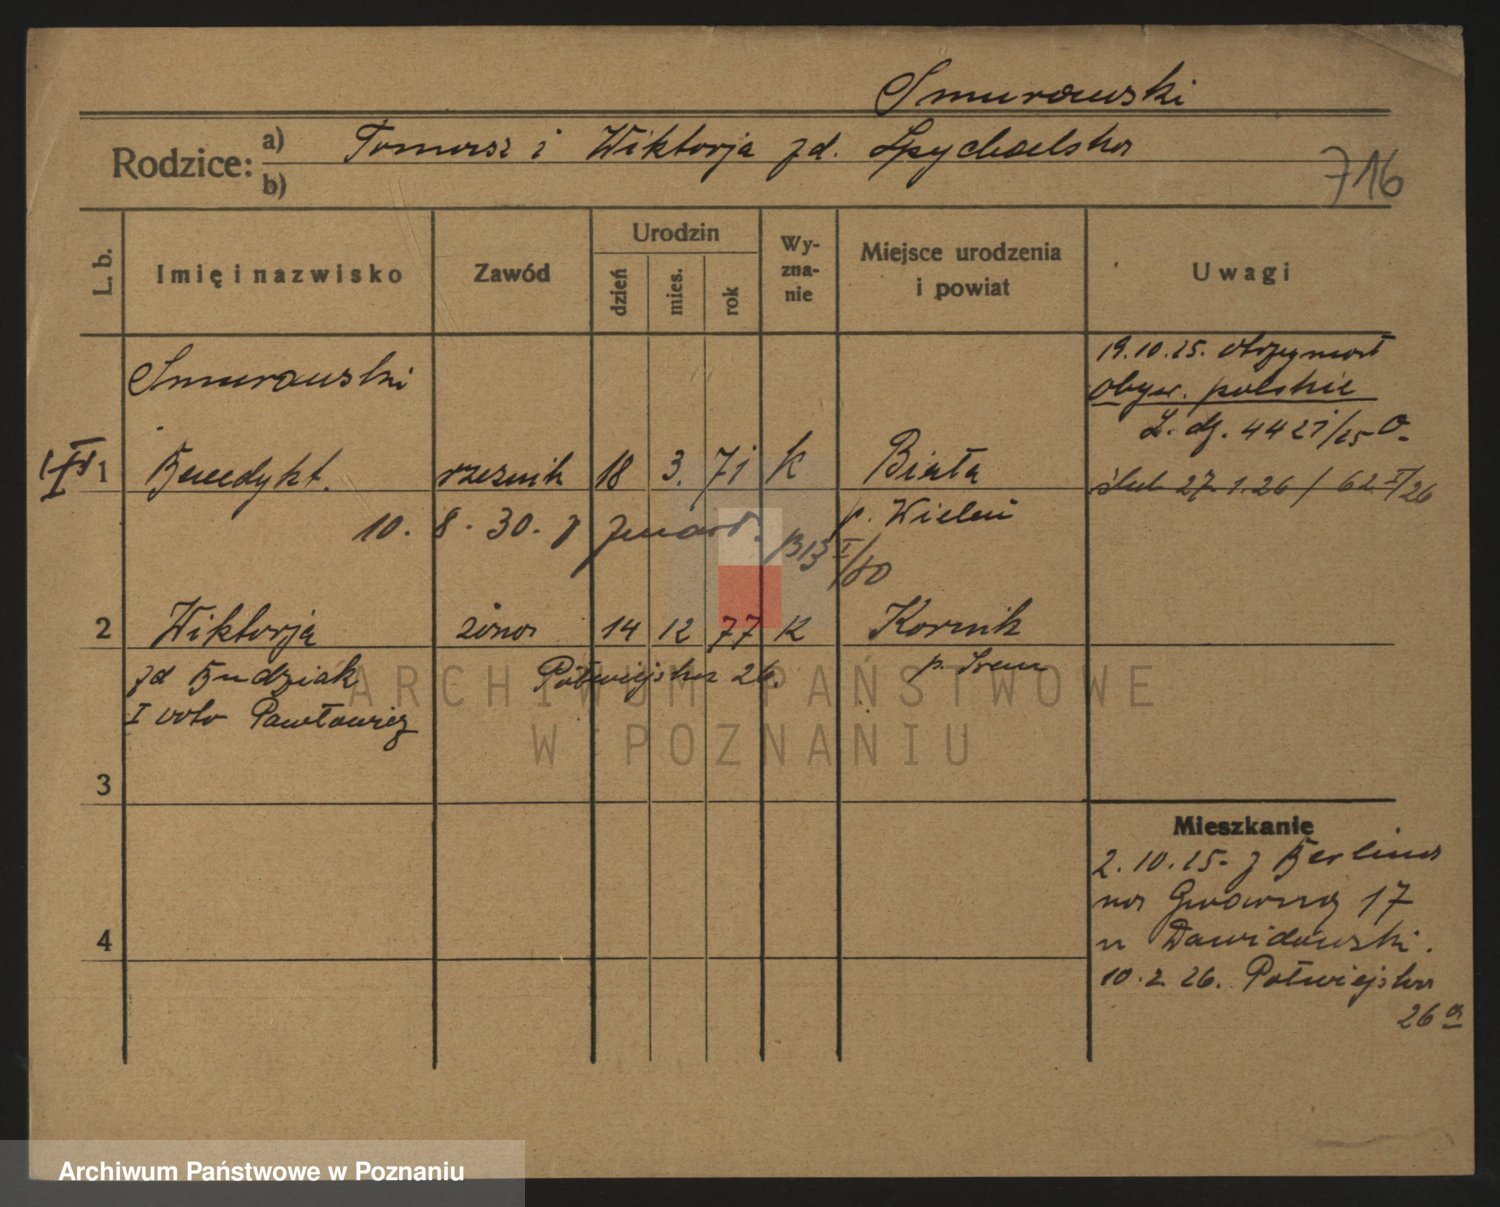 Smurawski
Rodzice: a) Tomasz i Wiktorja zd. Spychalska
b)
716
L. b.
Imię i nazwisko
Zawód
Urodzin
dzień
mies.
rok
Wy-
zna-
nie
Miejsce urodzenia
i powiat
Uwagi
19.10.25. otrzymał
obyw. polskie
L. dz. 4427/25 O.
Smurawski
1 Benedykt. rzeźnik 18 3. 71 K Biała
p. Wieleń
ślub 27.1.26 / 62 I/26
10. 8. 30. zmarł.
2 Wiktorja żona 14 12 77 K Kórnik
p. Śrem
zd Budziak Półwiejska 26.
I voto Pawłowicz
3
4
Mieszkanie
2.10.25. z Berlina
na Gwarną 17
u Dawidowski.
10.2 26. Półwiejska
26 a
ARCHIWUM PAŃSTWOWE
W POZNANIU
Archiwum Państwowe w Poznaniu